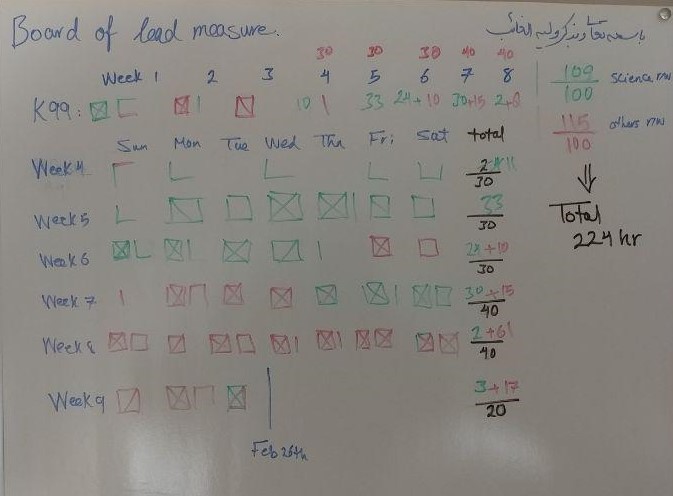 Board of lead measure.
30 30 30 40 40
Week 1 2 3 4 5 6 7 8
K99: 10 33 24+10 30+15
109
100
Science r/w
115
100
others r/w
Sun Mon Tue Wed Thu Fri Sat total
Week 4
30
Week 5 33
30
Week 6 24+10
30
Week 7 30+15
40
Week 8 2+61
40
Week 9 3+17
20
Total
224 hr
Feb 26th